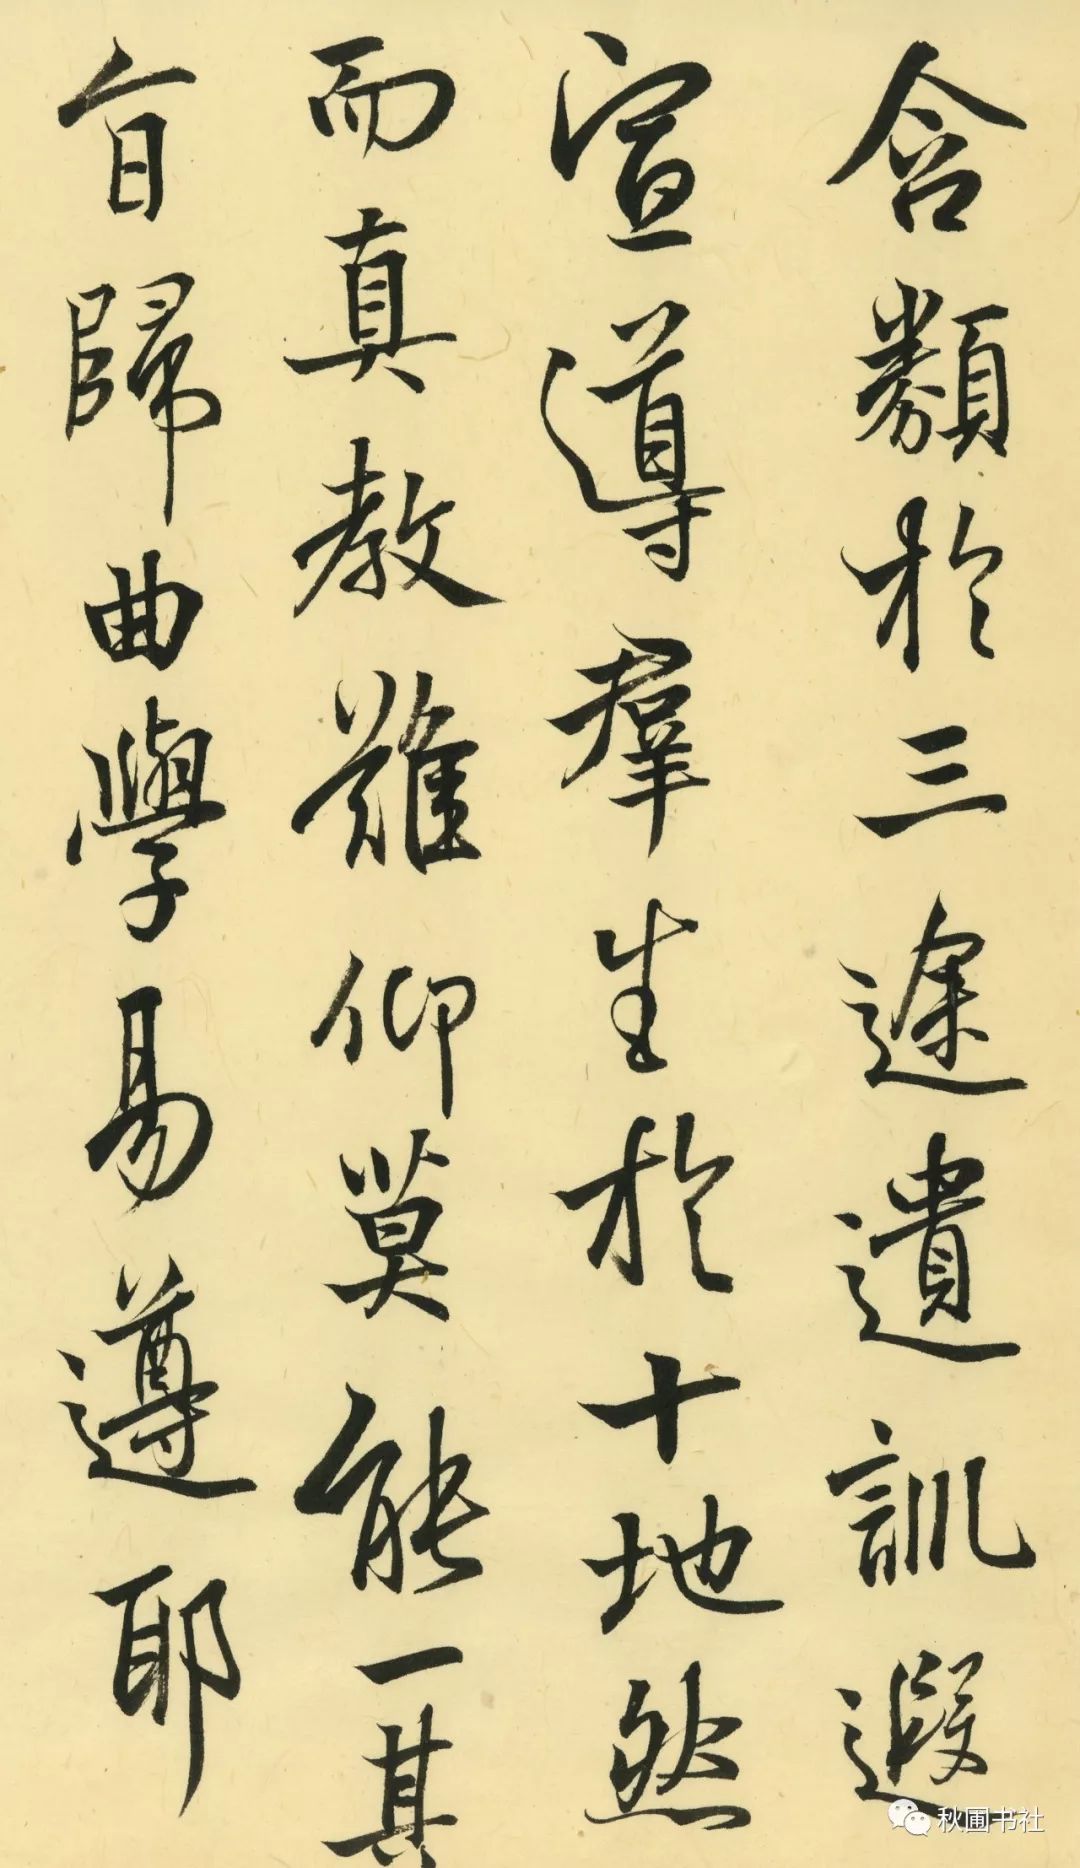 含類於三途遺訓遐
宣導羣生於十地然
而真教難仰莫能一其
旨歸曲學易遵耶
秋圃书社